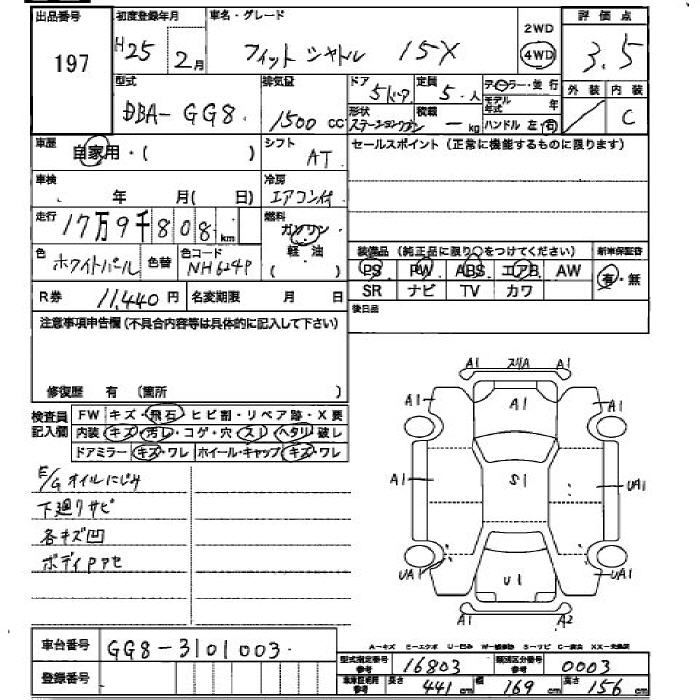 出品番号 初度登録年月 車名・グレード 2WD 評価点
197 H25 2月 フィット シャトル 15X 4WD 3.5
型式 排気量 ドア 定員 ディーラー・並行 外装 内装
DBA-GG8 1500cc 5ドア 5人 モデル年式 年 C
形状 積載 ハンドル 左 右
ステーションワゴン - kg
車歴 自家用・( ) シフト AT セールスポイント (正常に機能するものに限ります)
車検 年 月 ( 日) 冷房 エアコン付
走行 17万9千808km 燃料 ガソリン 軽油 ( )
装備品 (純正品に限り○をつけてください) 新車保証書
色 ホワイトパール 色替 色コード NH624P PS PW ABS エアB AW 有・無
R券 11,440円 名変期限 月 日 SR ナビ TV カワ
注意事項申告欄(不具合内容等は具体的に記入して下さい) 後日品
修復歴 有 (箇所 )
検査員記入欄 FW キズ・飛石・ヒビ割・リペア跡・X要
内装 キズ・汚レ・コゲ・穴・スレ・ヘタリ・破レ
ドアミラー キズ・ワレ ホイール・キャップ キズ・ワレ
E/Gオイルにじみ
下廻りサビ
各キズ凹
ボディPアセ
A1 スリA A1
A1 A1 A1
A1 S1 UA1
UA1 U1 UA1
A1 A2
車台番号 GG8-3101003
A-キズ E-エクボ U-凹み W-補修跡 S-サビ C-腐食 XX-交換済
登録番号 型式指定番号参考 16803 類別区分番号参考 0003
車庫証明用参考 長さ 441cm 幅 169cm 高さ 156cm